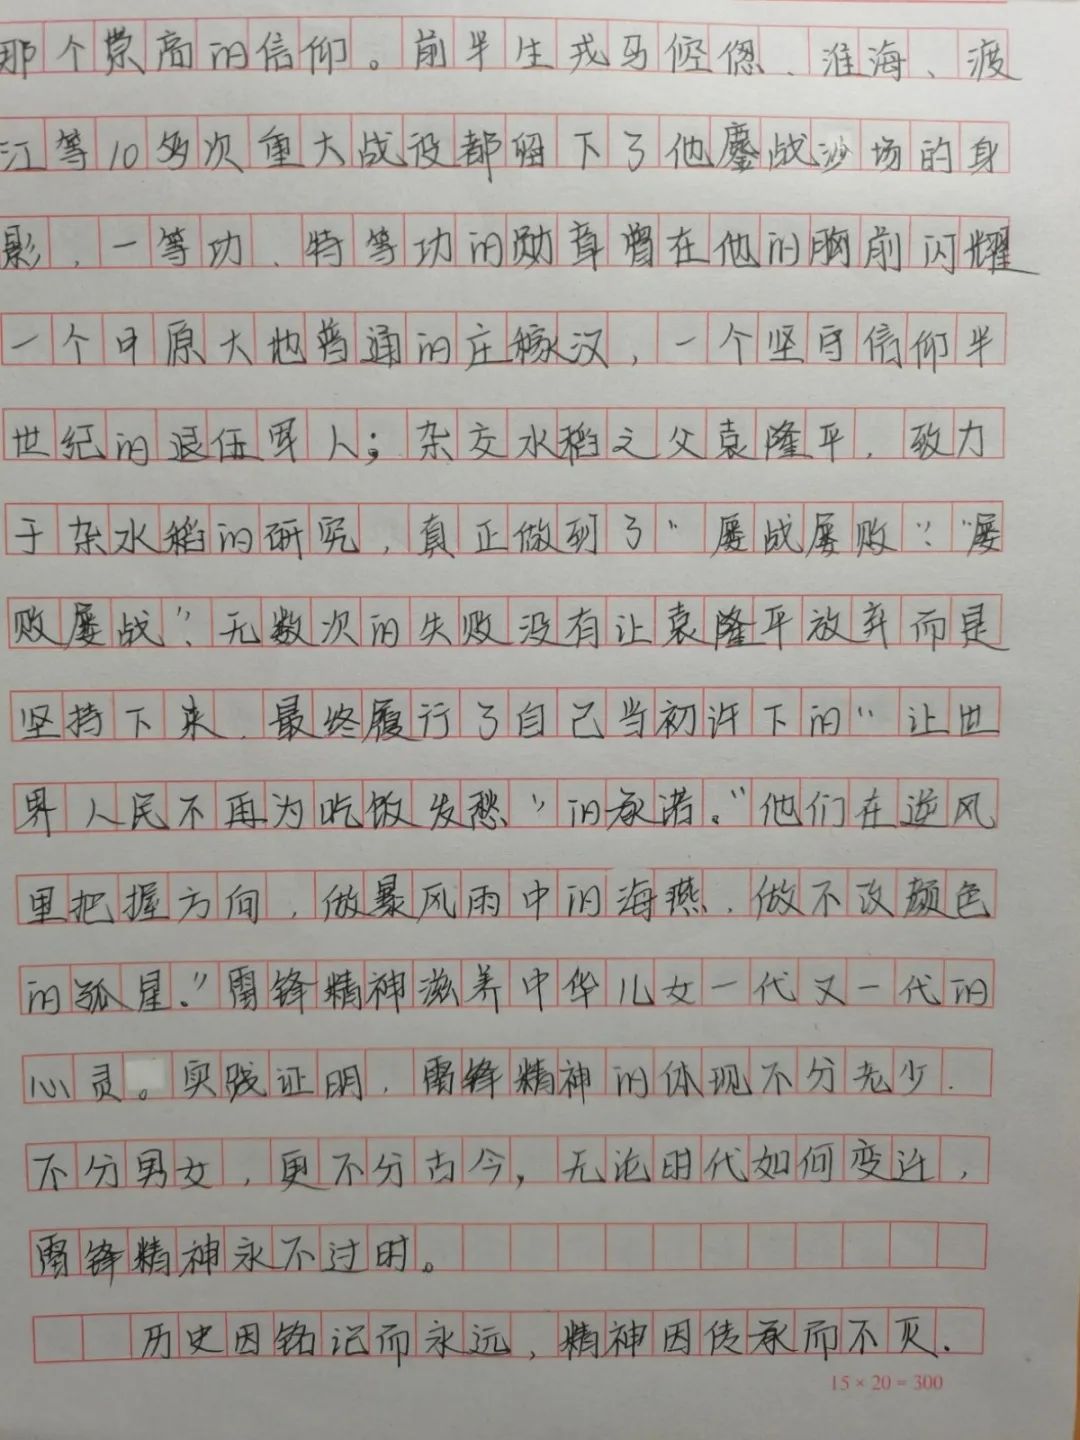 那个崇高的信仰。前半生戎马倥偬、淮海、渡
江等10多次重大战役都留下了他鏖战沙场的身
影,一等功、特等功的勋章曾在他的胸前闪耀
一个中原大地普通的庄稼汉,一个坚守信仰半
世纪的退伍军人;杂交水稻之父袁隆平,致力
于杂水稻的研究,真正做到了“屡战屡败”“屡
败屡战”,无数次的失败没有让袁隆平放弃而是
坚持下来,最终履行了自己当初许下的“让世
界人民不再为吃饭发愁”的承诺。“他们在逆风
里把握方向,做暴风雨中的海燕,做不改颜色
的孤星。”雷锋精神滋养中华儿女一代又一代的
心灵。实践证明,雷锋精神的体现不分老少,
不分男女,更不分古今,无论时代如何变迁,
雷锋精神永不过时。
历史因铭记而永远,精神因传承而不灭.
15×20=300